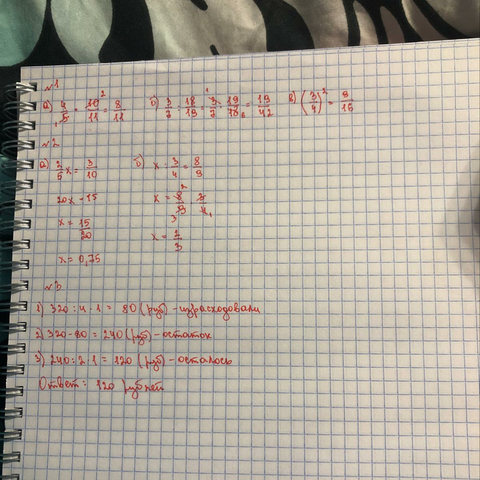 №1
а) 4/5 · 10/11 = 8/11 б) 3/7 : 18/19 = 3/7 · 19/18 = 19/42 в) (3/4)² = 9/16
№2
а) 2/5 x = 3/10 б) x : 3/4 = 8/9
20x = 15 x = 8/9 · 3/4
x = 15/20 x = 2/3
x = 0,75
№3
1) 320 : 4 · 1 = 80 (руб) - израсходовали
2) 320 - 80 = 240 (руб) - остаток
3) 240 : 2 · 1 = 120 (руб) - осталось
Ответ: 120 рублей